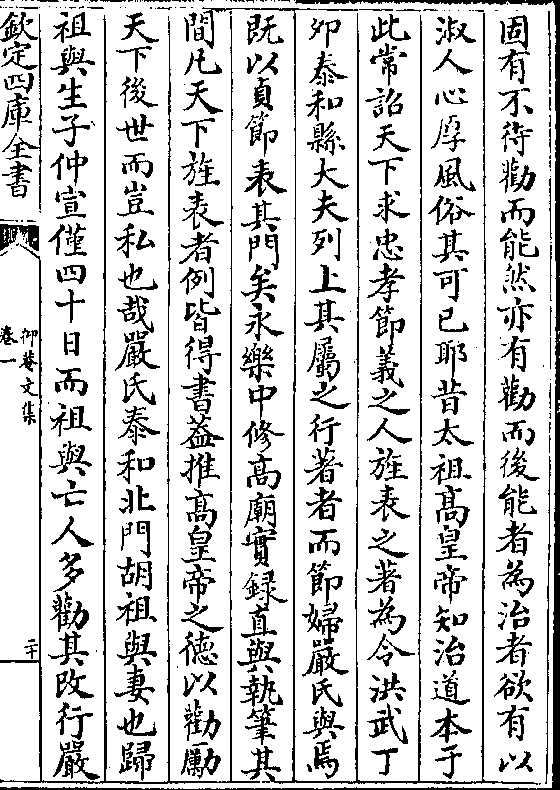 固有不待勸而能然亦有勸而後能者為治者欲有以
淑人心厚風俗其可已耶昔太祖髙皇帝知治道本于
此常詔天下求忠孝節義之人旌表之著為令洪武丁
夘泰和縣大夫列上其屬之行著者而節婦嚴氏與焉
既以貞節表其門矣永樂中修髙廟實録直與執筆其
間凡天下旌表者例皆得書葢推髙皇帝之徳以勸勵
天下後世而豈私也哉嚴氏泰和北門胡祖與妻也歸
祖與生子仲宣僅四十日而祖與亡人多勸其改行嚴
欽定四庫全書
抑菴文集
卷一
二十